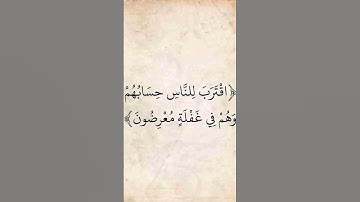 ﴿اقْتَرَبَ لِلنَّاسِ حِسَابُهُمْ
وَهُمْ فِي غَفْلَةٍ مُعْرِضُونَ﴾